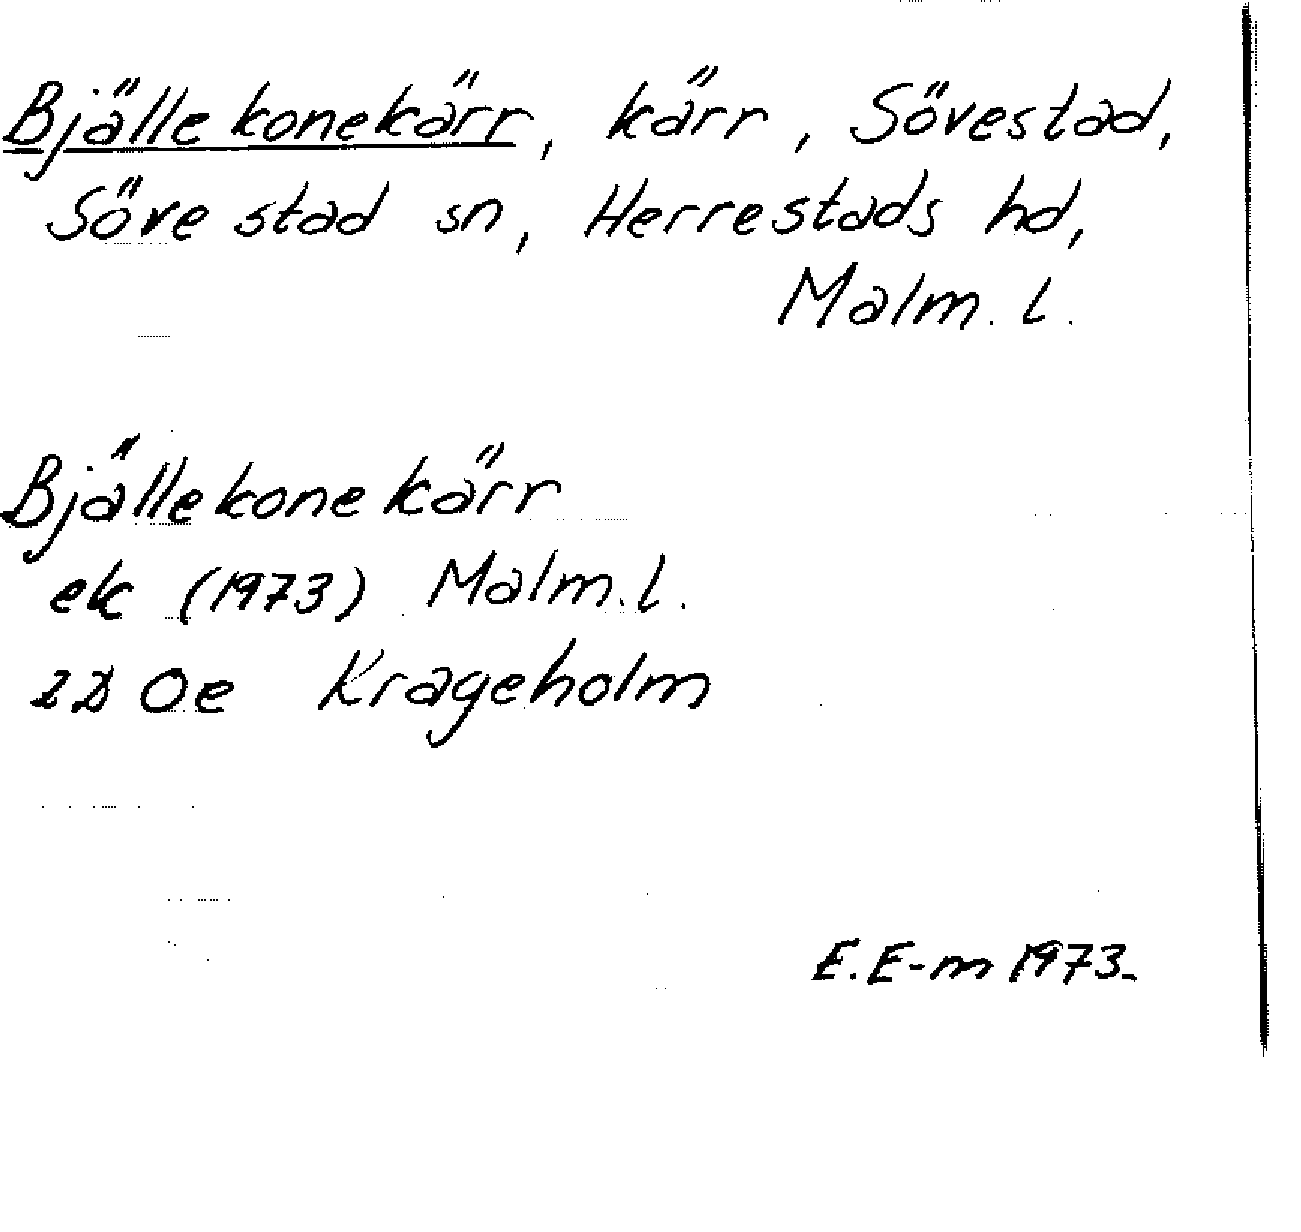 Bjällekonekärr, kärr, Sövestad,
Sövestad sn, Herrestads hd,
Malm. l.
Bjällekonekärr
ek (1973) Malm. l.
2D 0e Krageholm
E. E-m 1973.